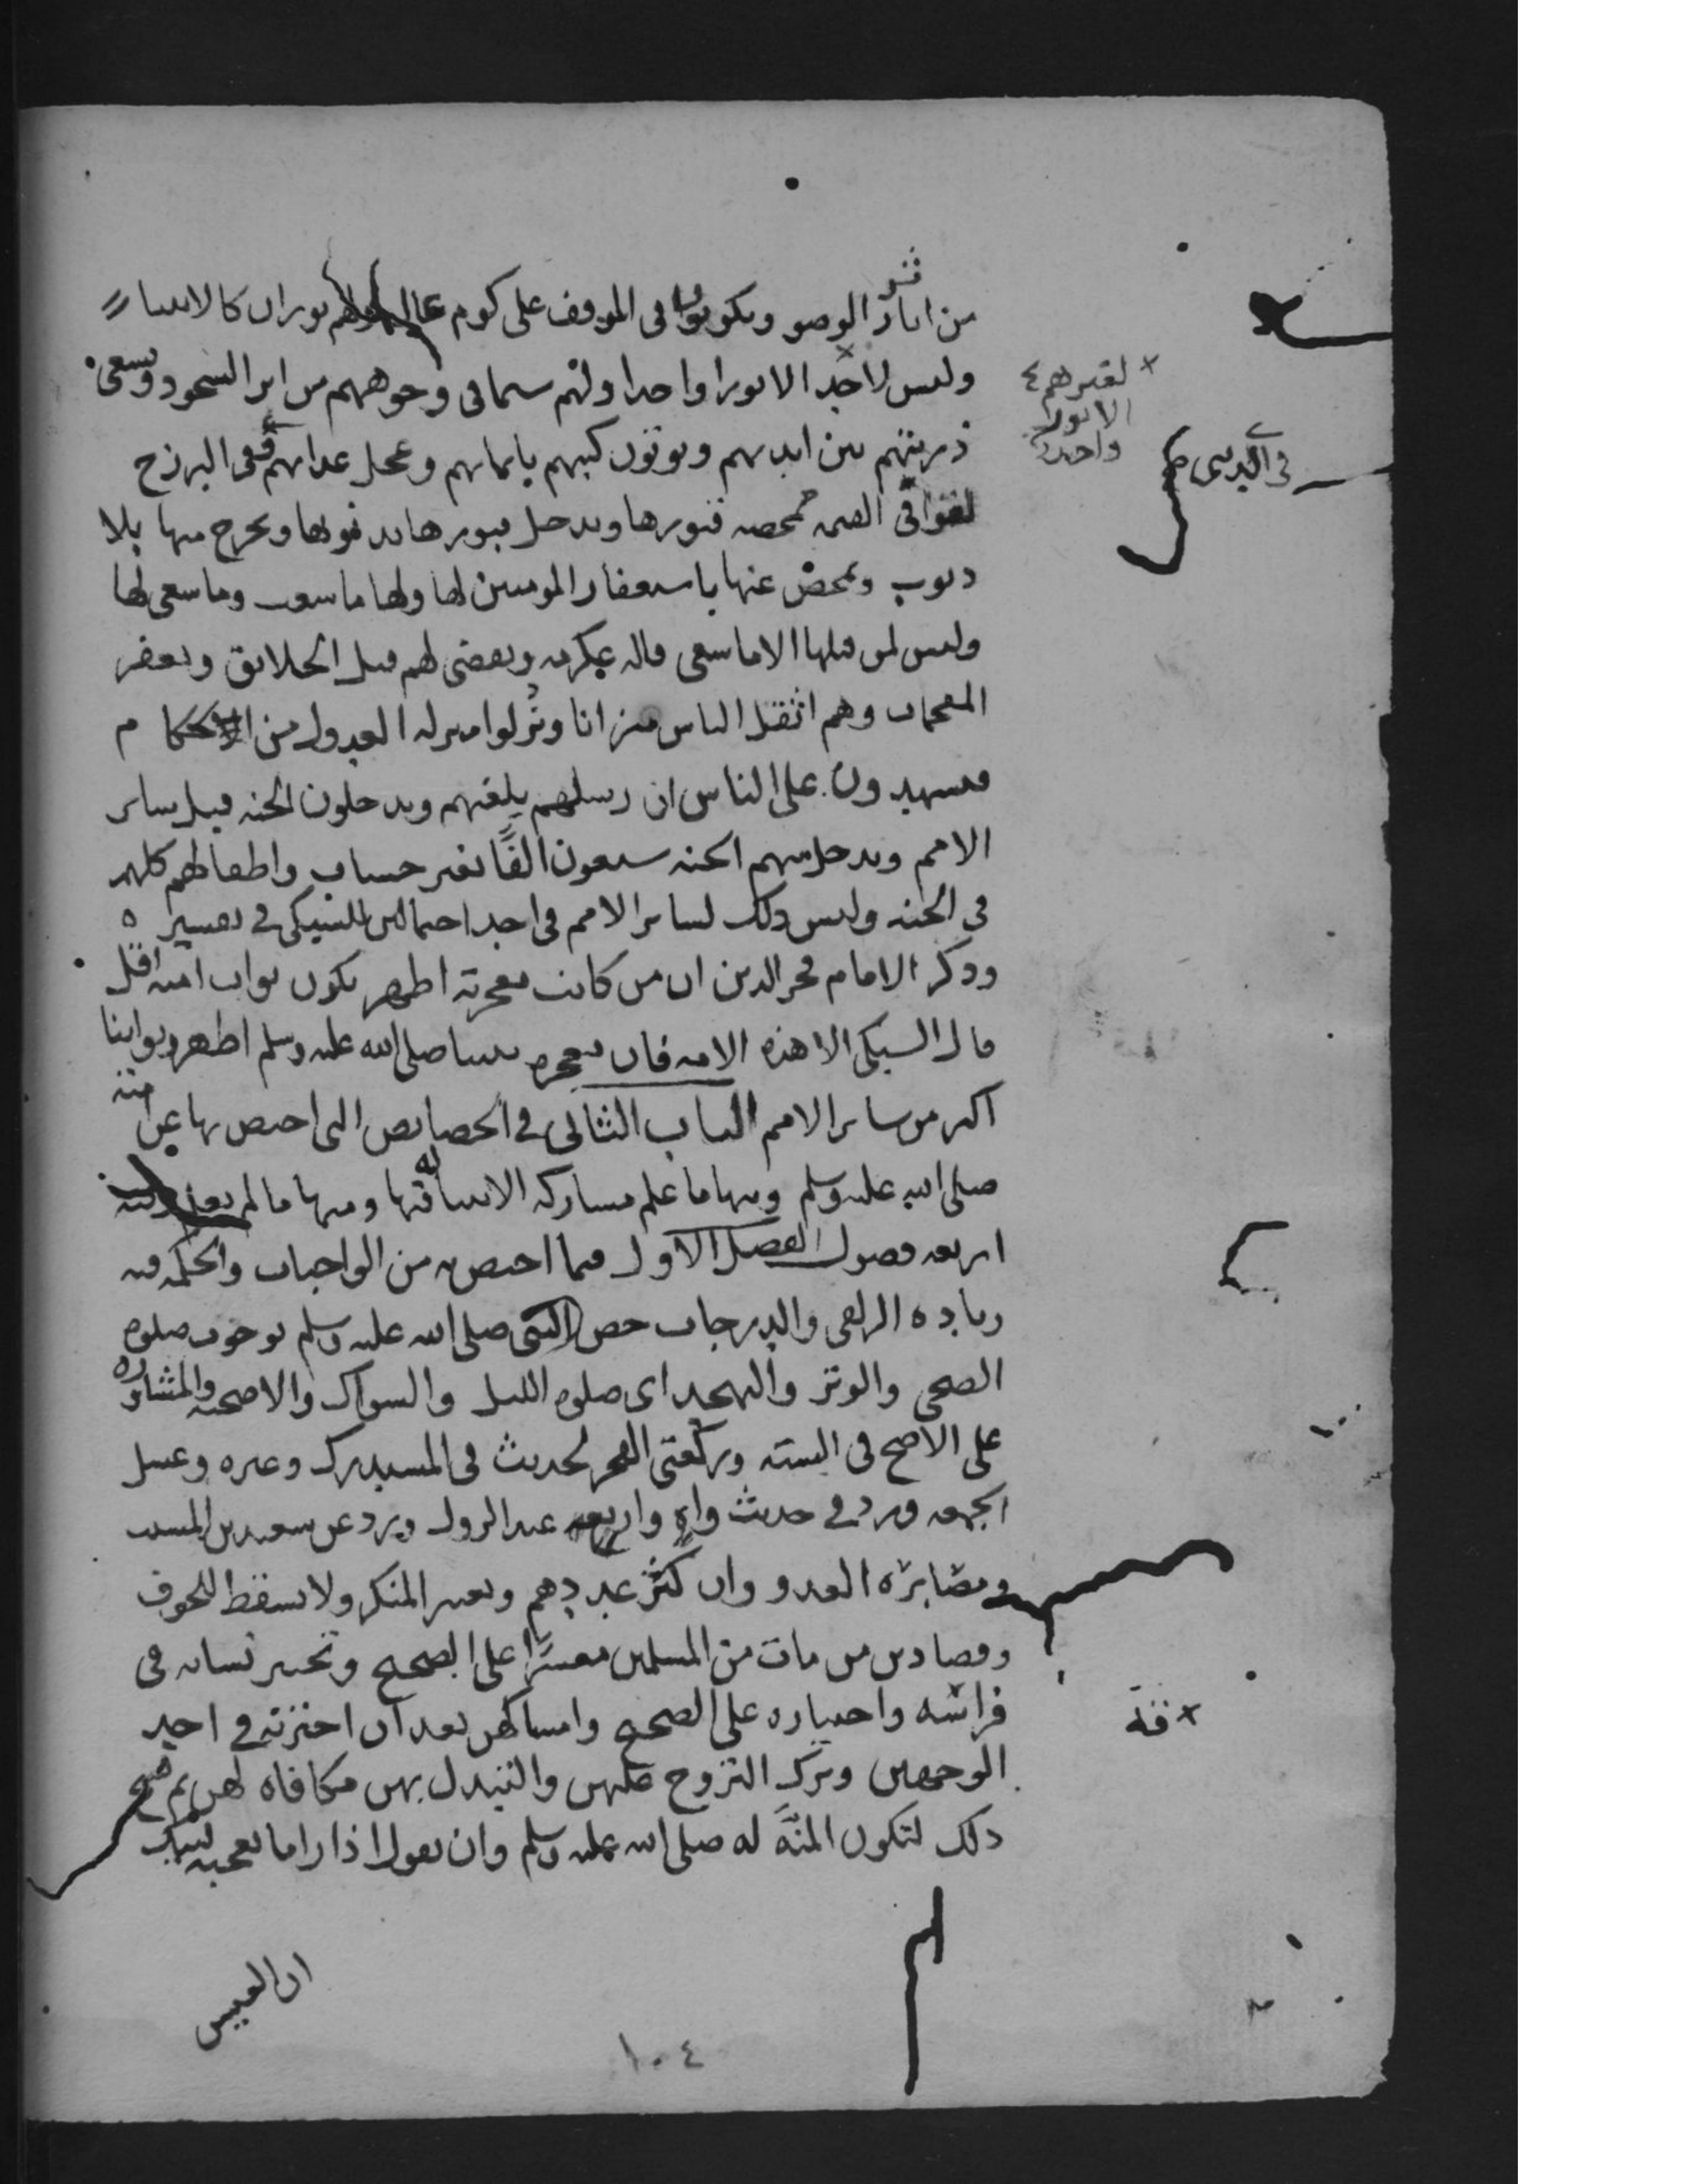 من اثار الوضو ويكونوا فى الموقف على كوم عال ولهم نوران كالانبيا
وليس لاحد الا نورا واحدا ولهم سيما فى وجوههم من اثر السجود وتسعى
لغيرهم
الا نورا
واحدا
ذريتهم بين ايديهم ويوتون كتبهم بايمانهم وعجل عذابهم فى البرزخ
فى الدنيا
القيمة ممحصه قبورها ويدخل قبورها بذنوبها ويخرج منها بلا
ذنوب وتمحص عنها باستغفار المومنين لها ولها ما سعت وما سعى لها
وليس لمن قبلها الا ما سعى قاله عكرمه ويقضى لهم قبل الخلايق ويغفر
المقحمات وهم اثقل الناس ميزانا ونزلوا منزله العدول من الحكام
فيشهدون على الناس ان رسلهم بلغتهم ويدخلون الجنه قبل ساير
الامم ويدخل منهم الجنه سبعون الفًا بغير حساب واطفالهم كلهم
فى الجنه وليس ذلك لساير الامم فى احد احتمالين للسبكى فى تفسيره
وذكر الامام فخر الدين ان من كانت معجزته اظهر يكون ثواب امته اقل
قال السبكى الا هذه الامه فان معجزه نبينا صلى الله عليه وسلم اظهر وثوابنا
اكثر من ساير الامم الباب الثانى فى الخصايص التى اختص بها عن امته
صلى الله عليه وسلم ومنها ما علم مشاركه الانبيا له فيها ومنها ما لم يعلم وفيه
اربعه فصول الفصل الاول فيما اختص به من الواجبات والحكمه فيه
زياده الزلفى والدرجات خص النبى صلى الله عليه وسلم بوجوب صلوه
الضحى والوتر والتهجد اى صلوه الليل والسواك والاضحيه والمشاوره
على الاصح فى الستة وركعتى الفجر لحديث فى المستدرك وغيره وغسل
الجمعه ورد فى حديث واهٍ واربع عند الزوال ورد عن سعيد بن المسيب
ومصابرة العدو وان كثر عددهم وتغيير المنكر ولا يسقط للخوف
وقضا دين من مات من المسلمين معسرًا على الصحيح وتخيير نسايه فى
فراقه واختياره على الصحيح وامساكهن بعد ان اخترنه فى احد
الوجهين وترك التزوج عليهن والتبدل بهن مكافاه لهن ثم نسخ
ذلك لتكون المنَّه له صلى الله عليه وسلم وان يقول اذا راى ما يعجبه لبيك
ان العيش
١٠٤